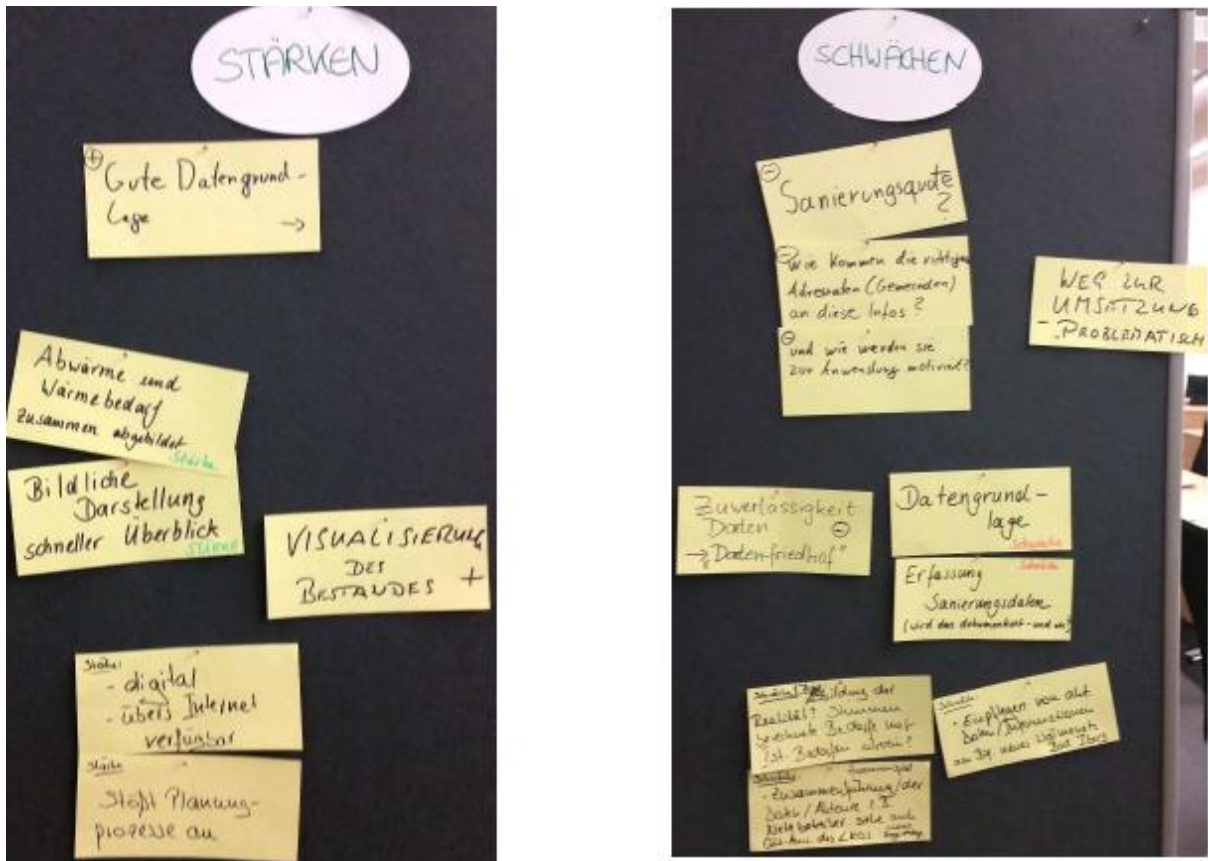 STÄRKEN
+
Gute Datengrund-
lage
→
Abwärme und
Wärmebedarf
zusammen abgebildet
Stärke
Bildliche
Darstellung
schneller Überblick
Stärke
VISUALISIERUNG
DES
BESTANDES +
Stärke:
- digital
- übers Internet
verfügbar
Stärke
Stößt Planung-
prozesse an
SCHWÄCHEN
-
Sanierungsquote
?
- Wie kommen die richtigen
Adressaten (Gemeinden)
an diese Infos?
- und wie werden sie
zur Anwendung motiviert?
WEG ZUR
UMSETZUNG
- PROBLEMATISCH
Zuverlässigkeit
Daten -
→ "Datenfriedhof"
Datengrund-
lage
Schwäche
Schwäche
Erfassung
Sanierungsdaten
(wird das dokumentiert - und wo?)
Realität? Stimmen
Bedarfe mit
Ist-Bedarfen überein?
Schwäche:
- Einpflegen von akt
Daten/Informationen
Bad Iburg
Schwäche:
- Zusammenführung/der
Daten/Akteure
Netzbetreiber siehe auch
des LKOS